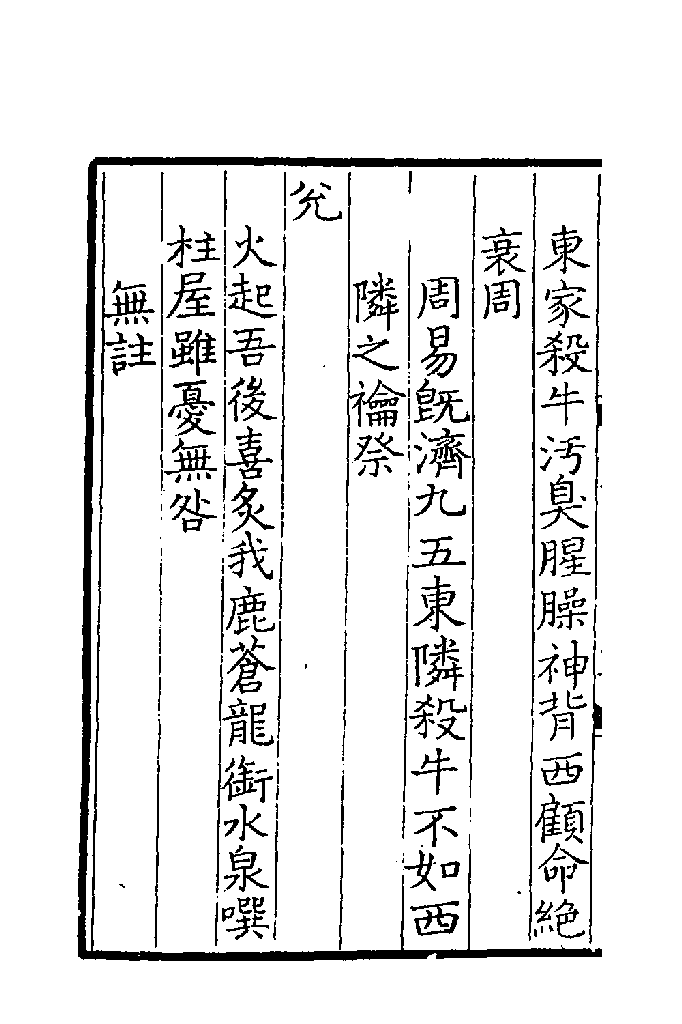 東家殺牛汚臭腥臊神背西顧命絶
衰周
周易旣濟九五東隣殺牛不如西
隣之禴祭
兊
火起吾後喜炙我鹿蒼龍銜水泉噀
柱屋雖憂無咎
無註